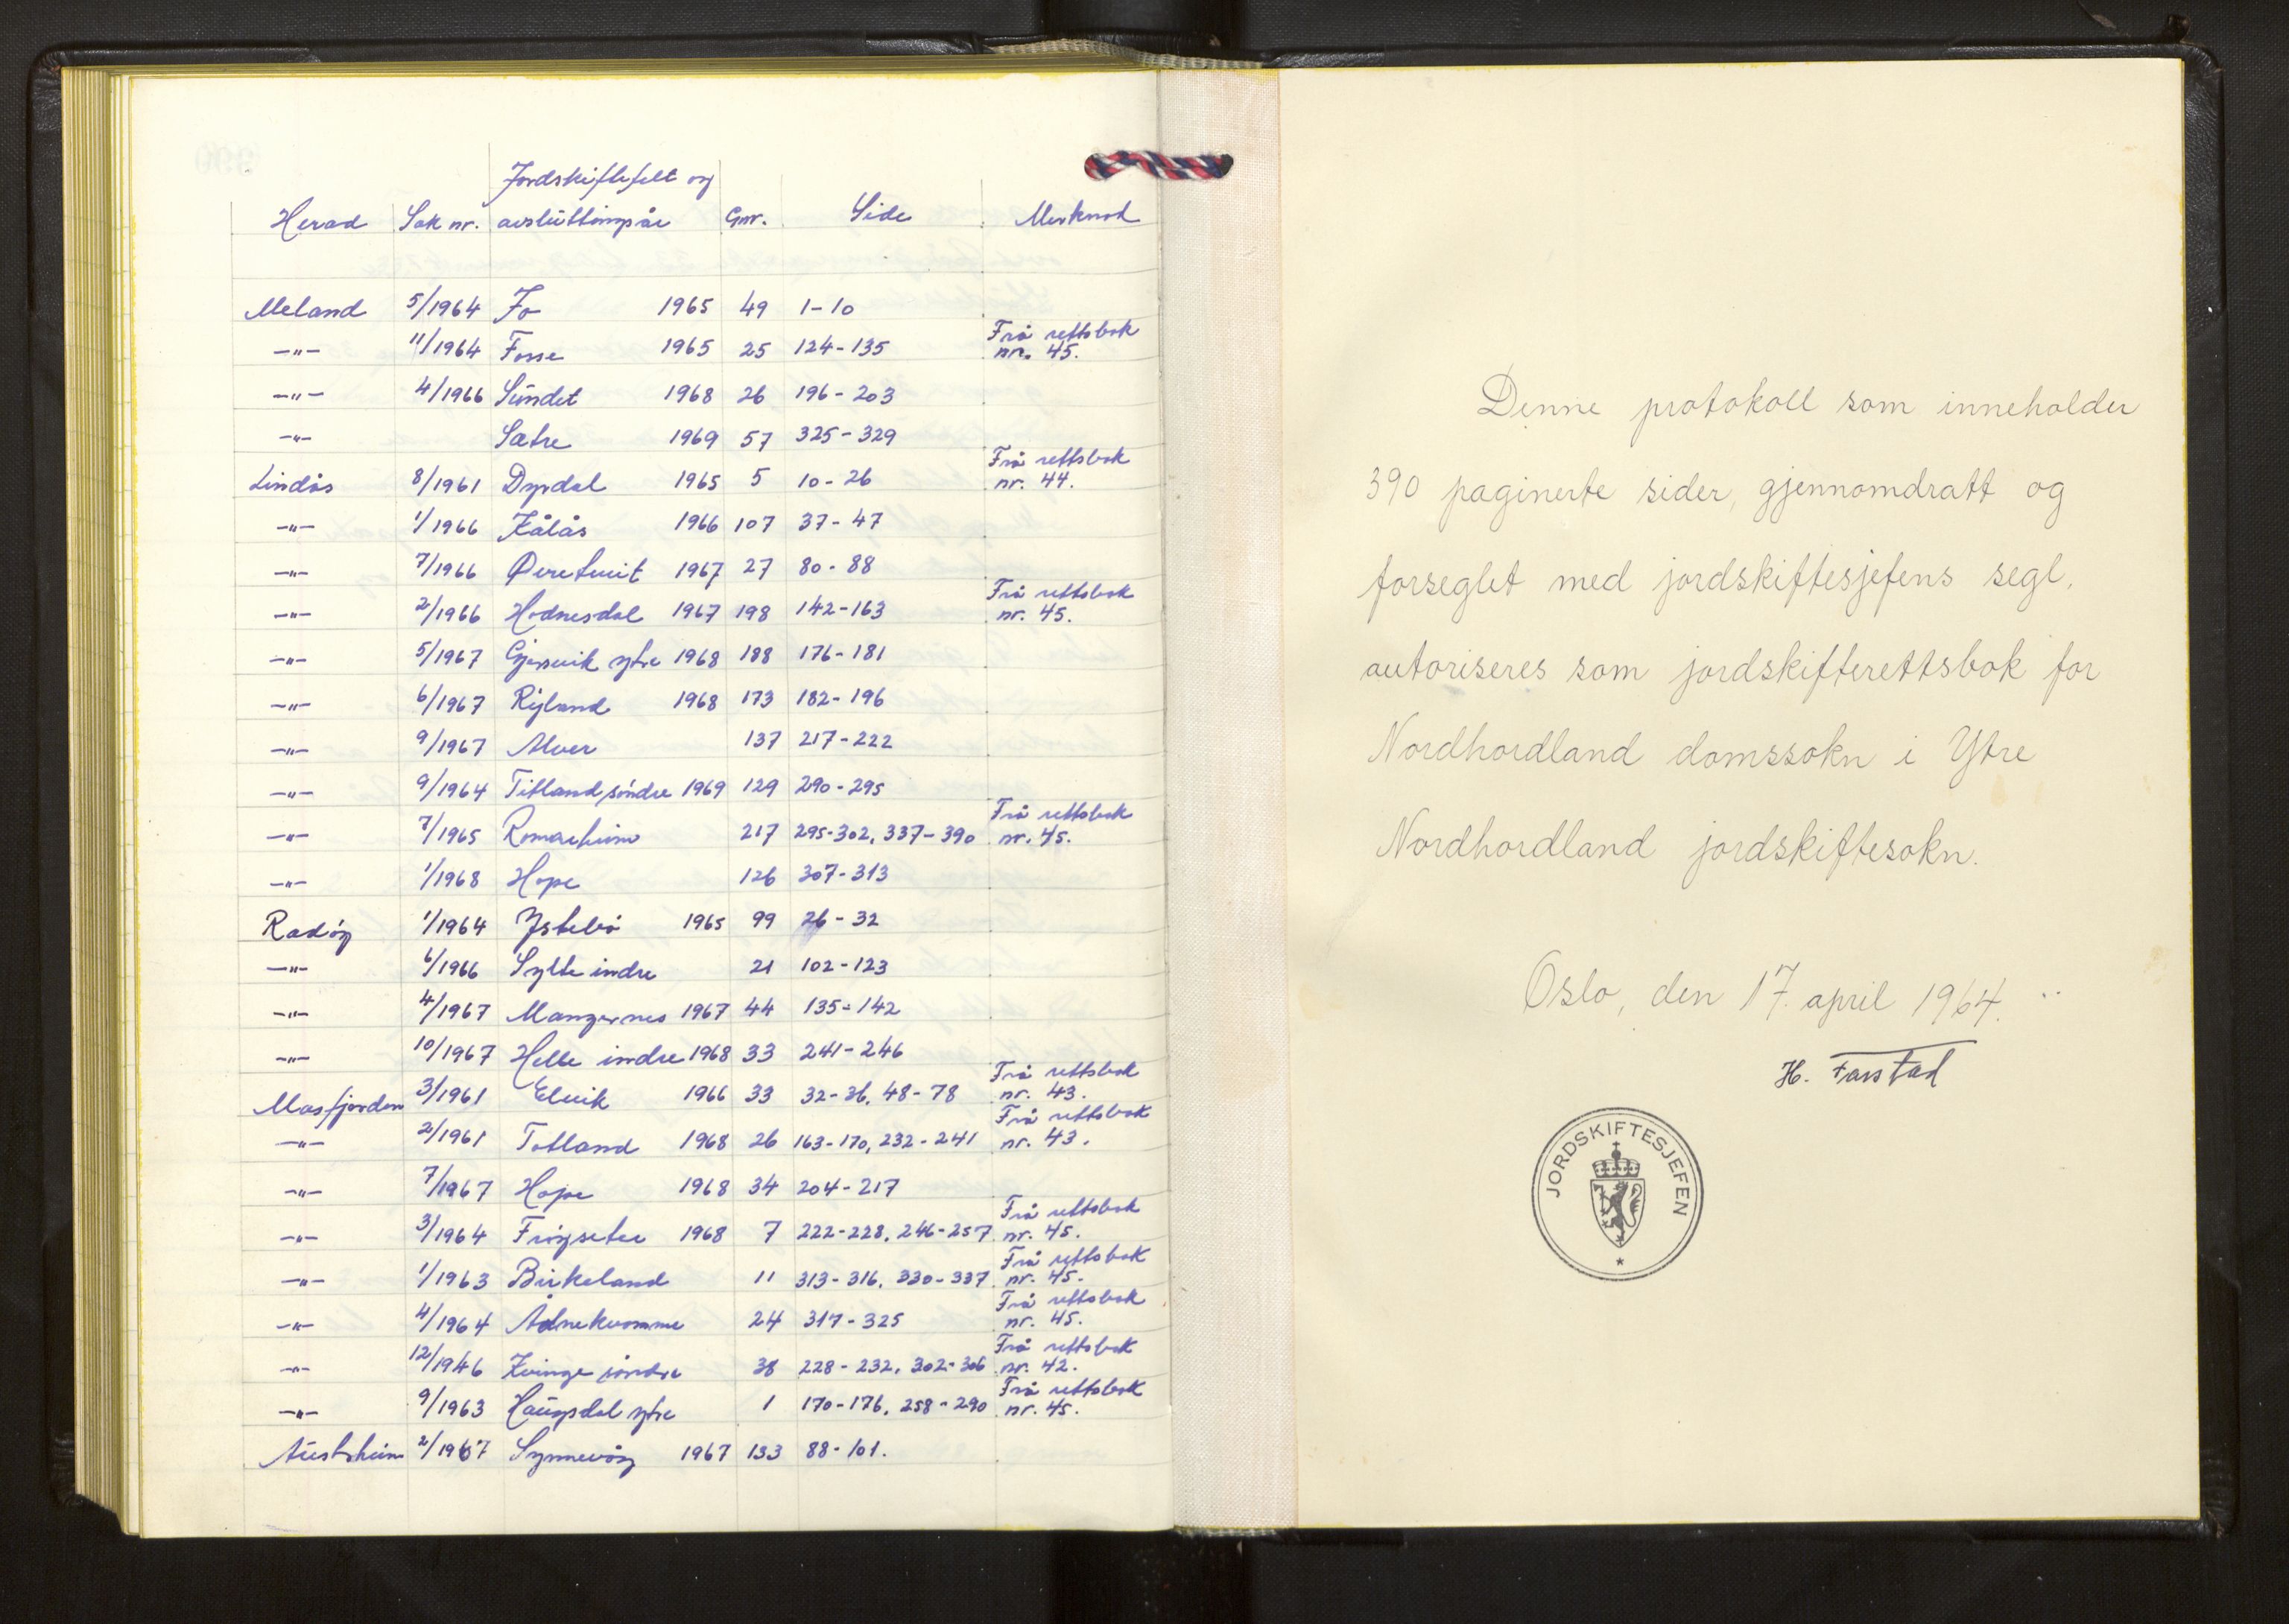 Jordskiftefelt og
Herad Sak nr. avsluttingsår Gnr. Side Merknad
Meland 5/1964 Fo 1965 49 1-10
-"- 11/1964 Fosse 1965 25 124-135 Frå rettsbok nr. 45.
-"- 4/1966 Sundet 1968 26 196-203
-"- Sætre 1969 57 325-329
Lindås 8/1961 Dyrdal 1965 5 10-26 Frå rettsbok nr. 44.
-"- 1/1966 Kålås 1966 107 37-47
-"- 7/1966 Øvretveit 1967 27 80-88
-"- 2/1966 Hodnesdal 1967 198 142-163 Frå rettsbok nr. 45.
-"- 5/1967 Gjervik ytre 1968 188 176-181
-"- 6/1967 Ryland 1968 173 182-196
-"- 9/1967 Alver 137 217-222
-"- 9/1964 Titland søndre 1969 129 290-295
-"- 7/1965 Romarheim 217 295-302, 337-390 Frå rettsbok nr. 45.
-"- 1/1968 Hope 126 307-313
Radøy 1/1964 Ystebø 1965 99 26-32
-"- 6/1966 Sylte indre 21 102-123
-"- 4/1967 Mangernes 1967 44 135-142
-"- 10/1967 Helle indre 1968 33 241-246
Masfjorden 3/1961 Elvik 1966 33 32-36, 48-78 Frå rettsbok nr. 43.
-"- 2/1961 Totland 1968 26 163-170, 232-241 Frå rettsbok nr. 43.
-"- 7/1967 Hope 1968 34 204-217
-"- 3/1964 Frøyseter 1968 7 222-228, 246-257 Frå rettsbok nr. 45.
-"- 1/1963 Birkeland 11 313-316, 330-337 Frå rettsbok nr. 45.
-"- 4/1964 Ådnekvamme 24 317-325 Frå rettsbok nr. 45.
-"- 12/1946 Kvinge søndre 38 228-232, 302-306 Frå rettsbok nr. 42.
-"- 9/1963 Haugsdal ytre 1 170-176, 258-290 Frå rettsbok nr. 45.
Austrheim 2/1967 Synnevåg 1967 133 88-101.
Denne protokoll som inneholder
390 paginerte sider, gjennomdratt og
forseglet med jordskiftesjefens segl,
autoriseres som jordskifterettsbok for
Nordhordland domssokn i Ytre
Nordhordland jordskiftesokn.
Oslo, den 17. april 1964.
H. Farstad
JORDSKIFTESJEFEN